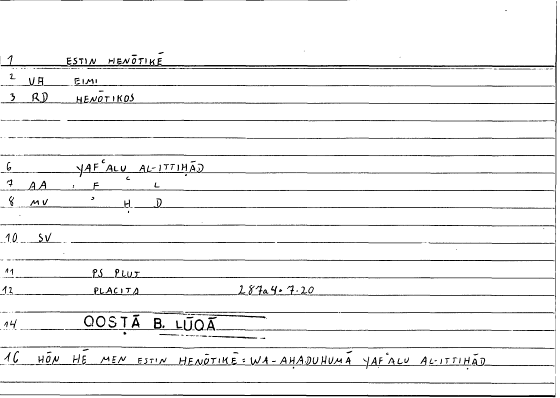 1 ESTIN HENŌTIKĒ
2 VA EIMI
3 RD HENŌTIKOS
6 YAFʿALU AL-ITTIḤĀD
7 AA , F ʿ L
8 MV ʾ Ḥ D
10 SV
11 PS PLUT
12 PLACITA 287a4. 7.20
14 QOSṬĀ B. LŪQĀ
16 HŌN HĒ MEN ESTIN HENŌTIKĒ: WA-AḤADUHUMĀ YAFʿALU AL-ITTIḤĀD